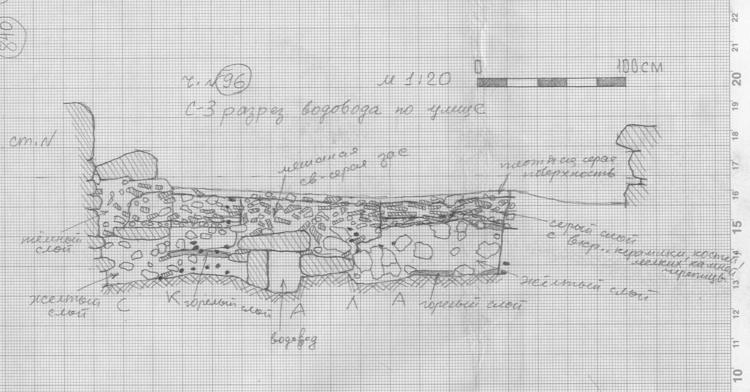 840
ч. №96 М 1:20 0 100 СМ
С-З разрез водовода по улице
ст. N
мешаная
св-серая
плотная серая
поверхность
тёмный
слой
серый слой
с вкр., керамики, костей,
мелких камней,
черепицы
жёлтый
слой
С К А Л А
горелый слой
водовод
горелый слой
жёлтый слой
22
21
20
19
18
17
16
15
14
13
12
11
10